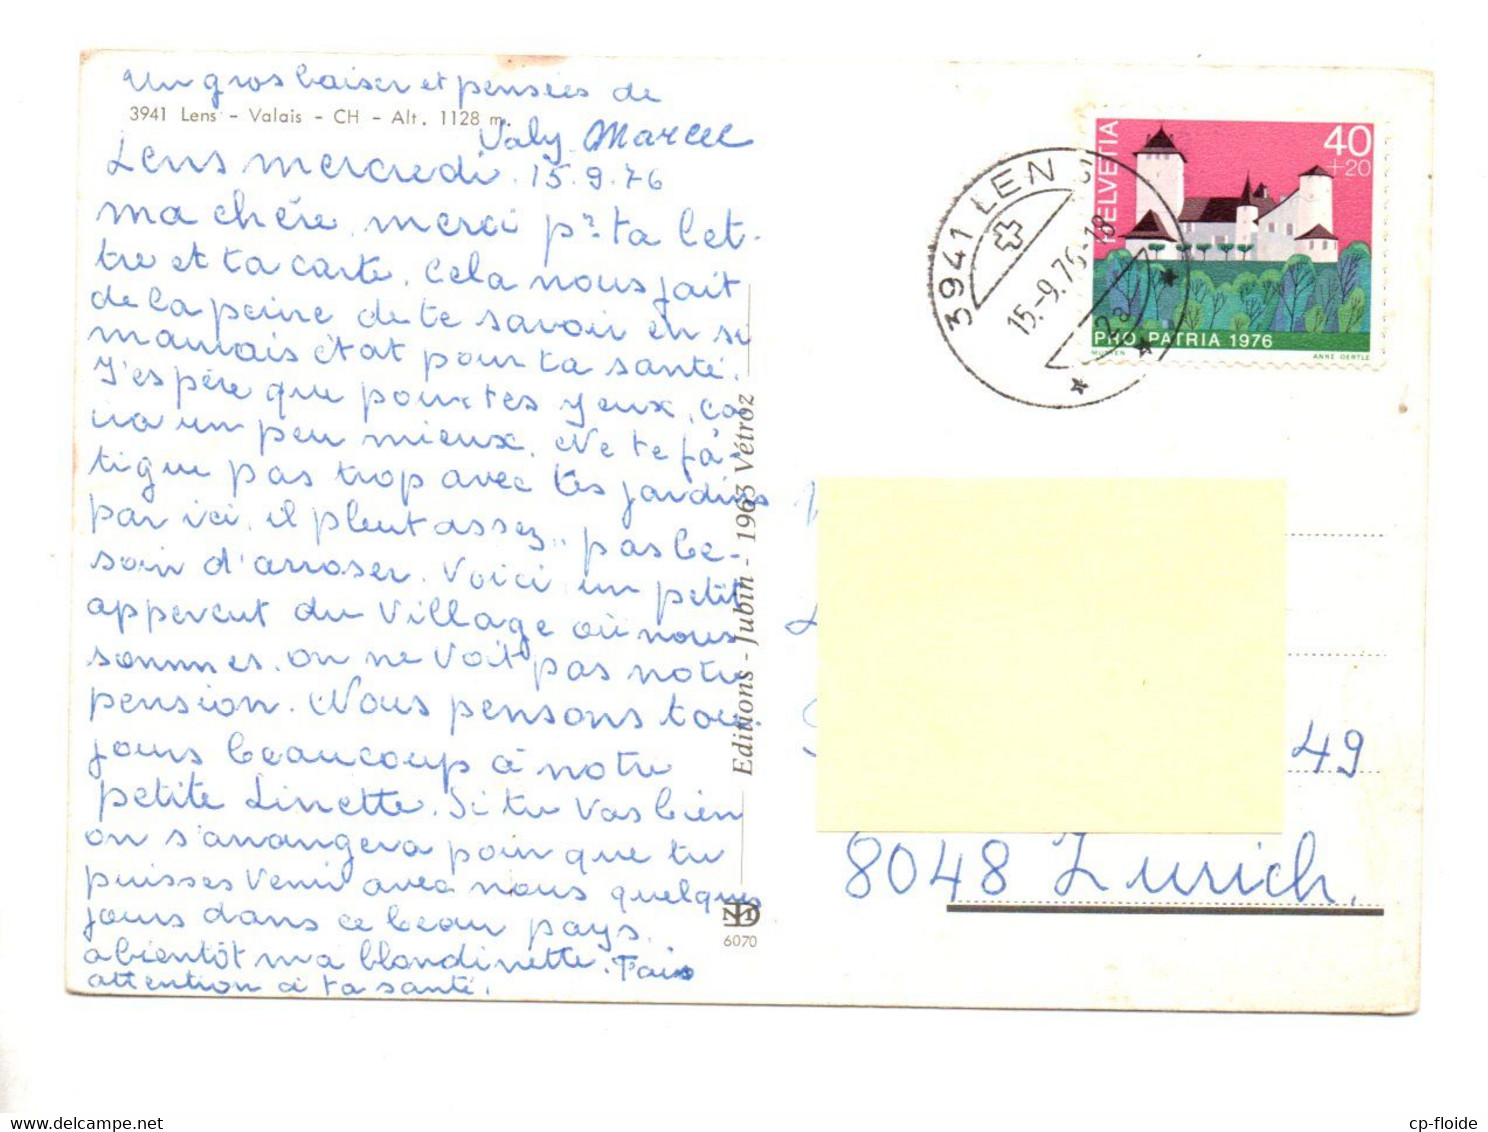 Un gros baiser et pensées de
3941 Lens - Valais - CH - Alt. 1128 m.
Valy Marcel
Lens mercredi. 15.9.76
ma chère, merci pr ta let-
tre et ta carte. Cela nous fait
de la peine de te savoir en si
mauvais état pour ta santé.
J'espère que pour tes yeux, ça
va un peu mieux. Ne te fa-
tigue pas trop avec tes jardins
par ici, il pleut assez, pas be-
soin d'arroser. Voici un petit
appercut du village où nous
sommes. on ne voit pas notre
pension. Nous pensons tou-
jours beaucoup à notre
petite Linette. Si tu vas bien
on s'arrangera pour que tu
puisses venir avec nous quelques
jours dans ce beau pays.
a bientôt ma blondinette. Fais
attention à ta santé.
Editions - Jubin - 1963 Vétroz
6070
HELVETIA
40
+20
PRO PATRIA 1976
MURTEN
ANNE OERTLE
3941 LENS
15.-9.76-18
2a
49
8048 Zurich.
www.delcampe.net
cp-floide